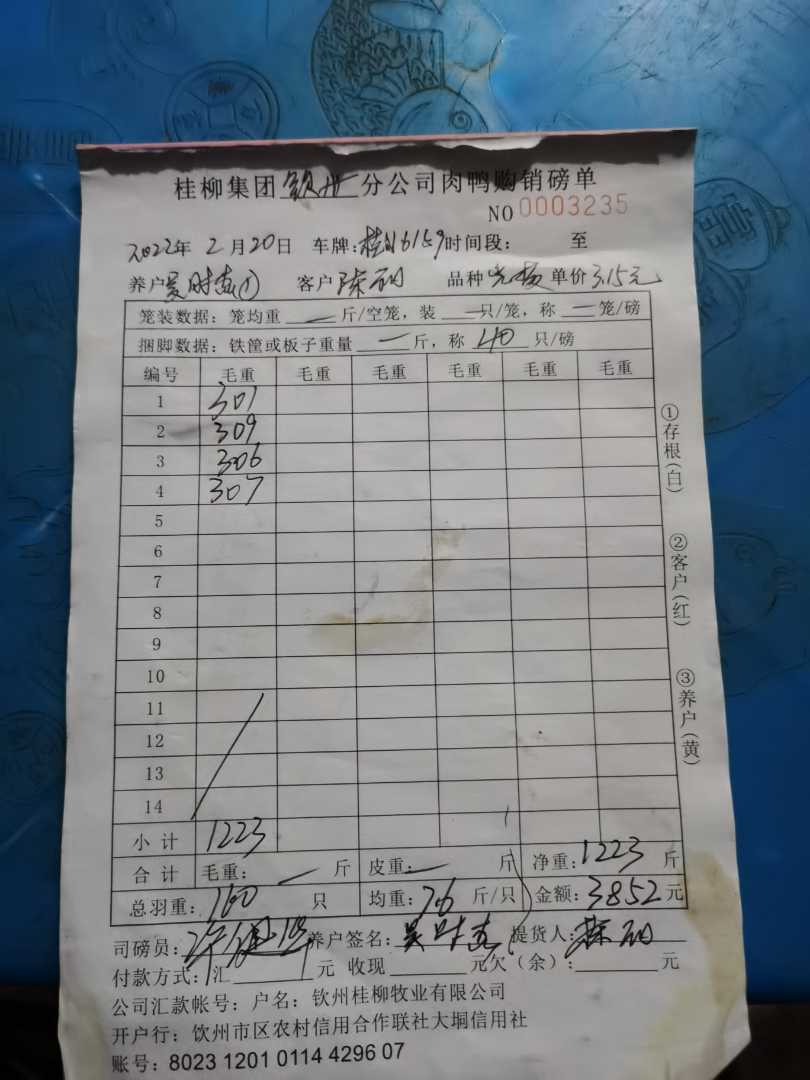 桂柳集团钦州分公司肉鸭购销磅单
NO 0003235
2022年 2月20日 车牌: 6159 时间段: 至
养户 吴时 ① 客户 陈 品种 单价 3.15元
笼装数据: 笼均重 — 斤/空笼, 装 — 只/笼, 称 — 笼/磅
捆脚数据: 铁筐或板子重量 — 斤, 称 40 只/磅
编号 毛重 毛重 毛重 毛重 毛重 毛重
1 301
2 309
3 306
4 307
5
6
7
8
9
10
11
12
13
14
小计 1223
合计 毛重: — 斤 皮重: — 斤 净重: 1223 斤
总羽重: 160 只 均重: 7.6 斤/只 金额: 3852 元
司磅员: 许 养户签名: 吴时 提货人: 陈
付款方式: 汇 元 收现 元 欠(余): 元
公司汇款帐号: 户名: 钦州桂柳牧业有限公司
开户行: 钦州市区农村信用合作联社大垌信用社
账号: 8023 1201 0114 4296 07
①存根(白)
②客户(红)
③养户(黄)